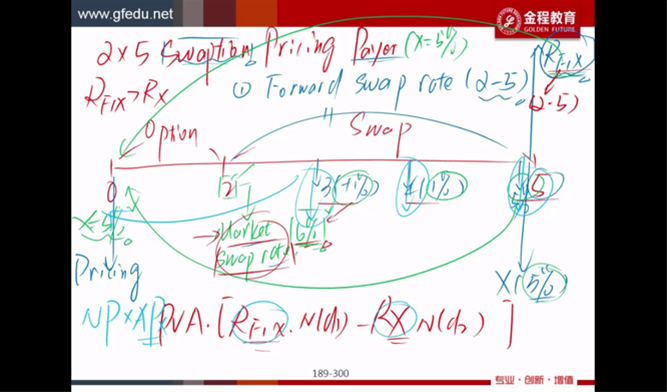 www.gfedu.net
金程教育
GOLDEN FUTURE
2×5 Swaption Pricing Payer (X=5%)
RFIX
RFIX>RX
① Forward swap rate (2-5)
(2-5)
Option
Swap
0
2
3 (+1%)
4 (1%)
5
X=5%
Market
swap rate
6%
Pricing
X 5%
NP×AP PVA·[RFIX·N(d1)-RX N(d2)]
189-300
专业·创新·增值